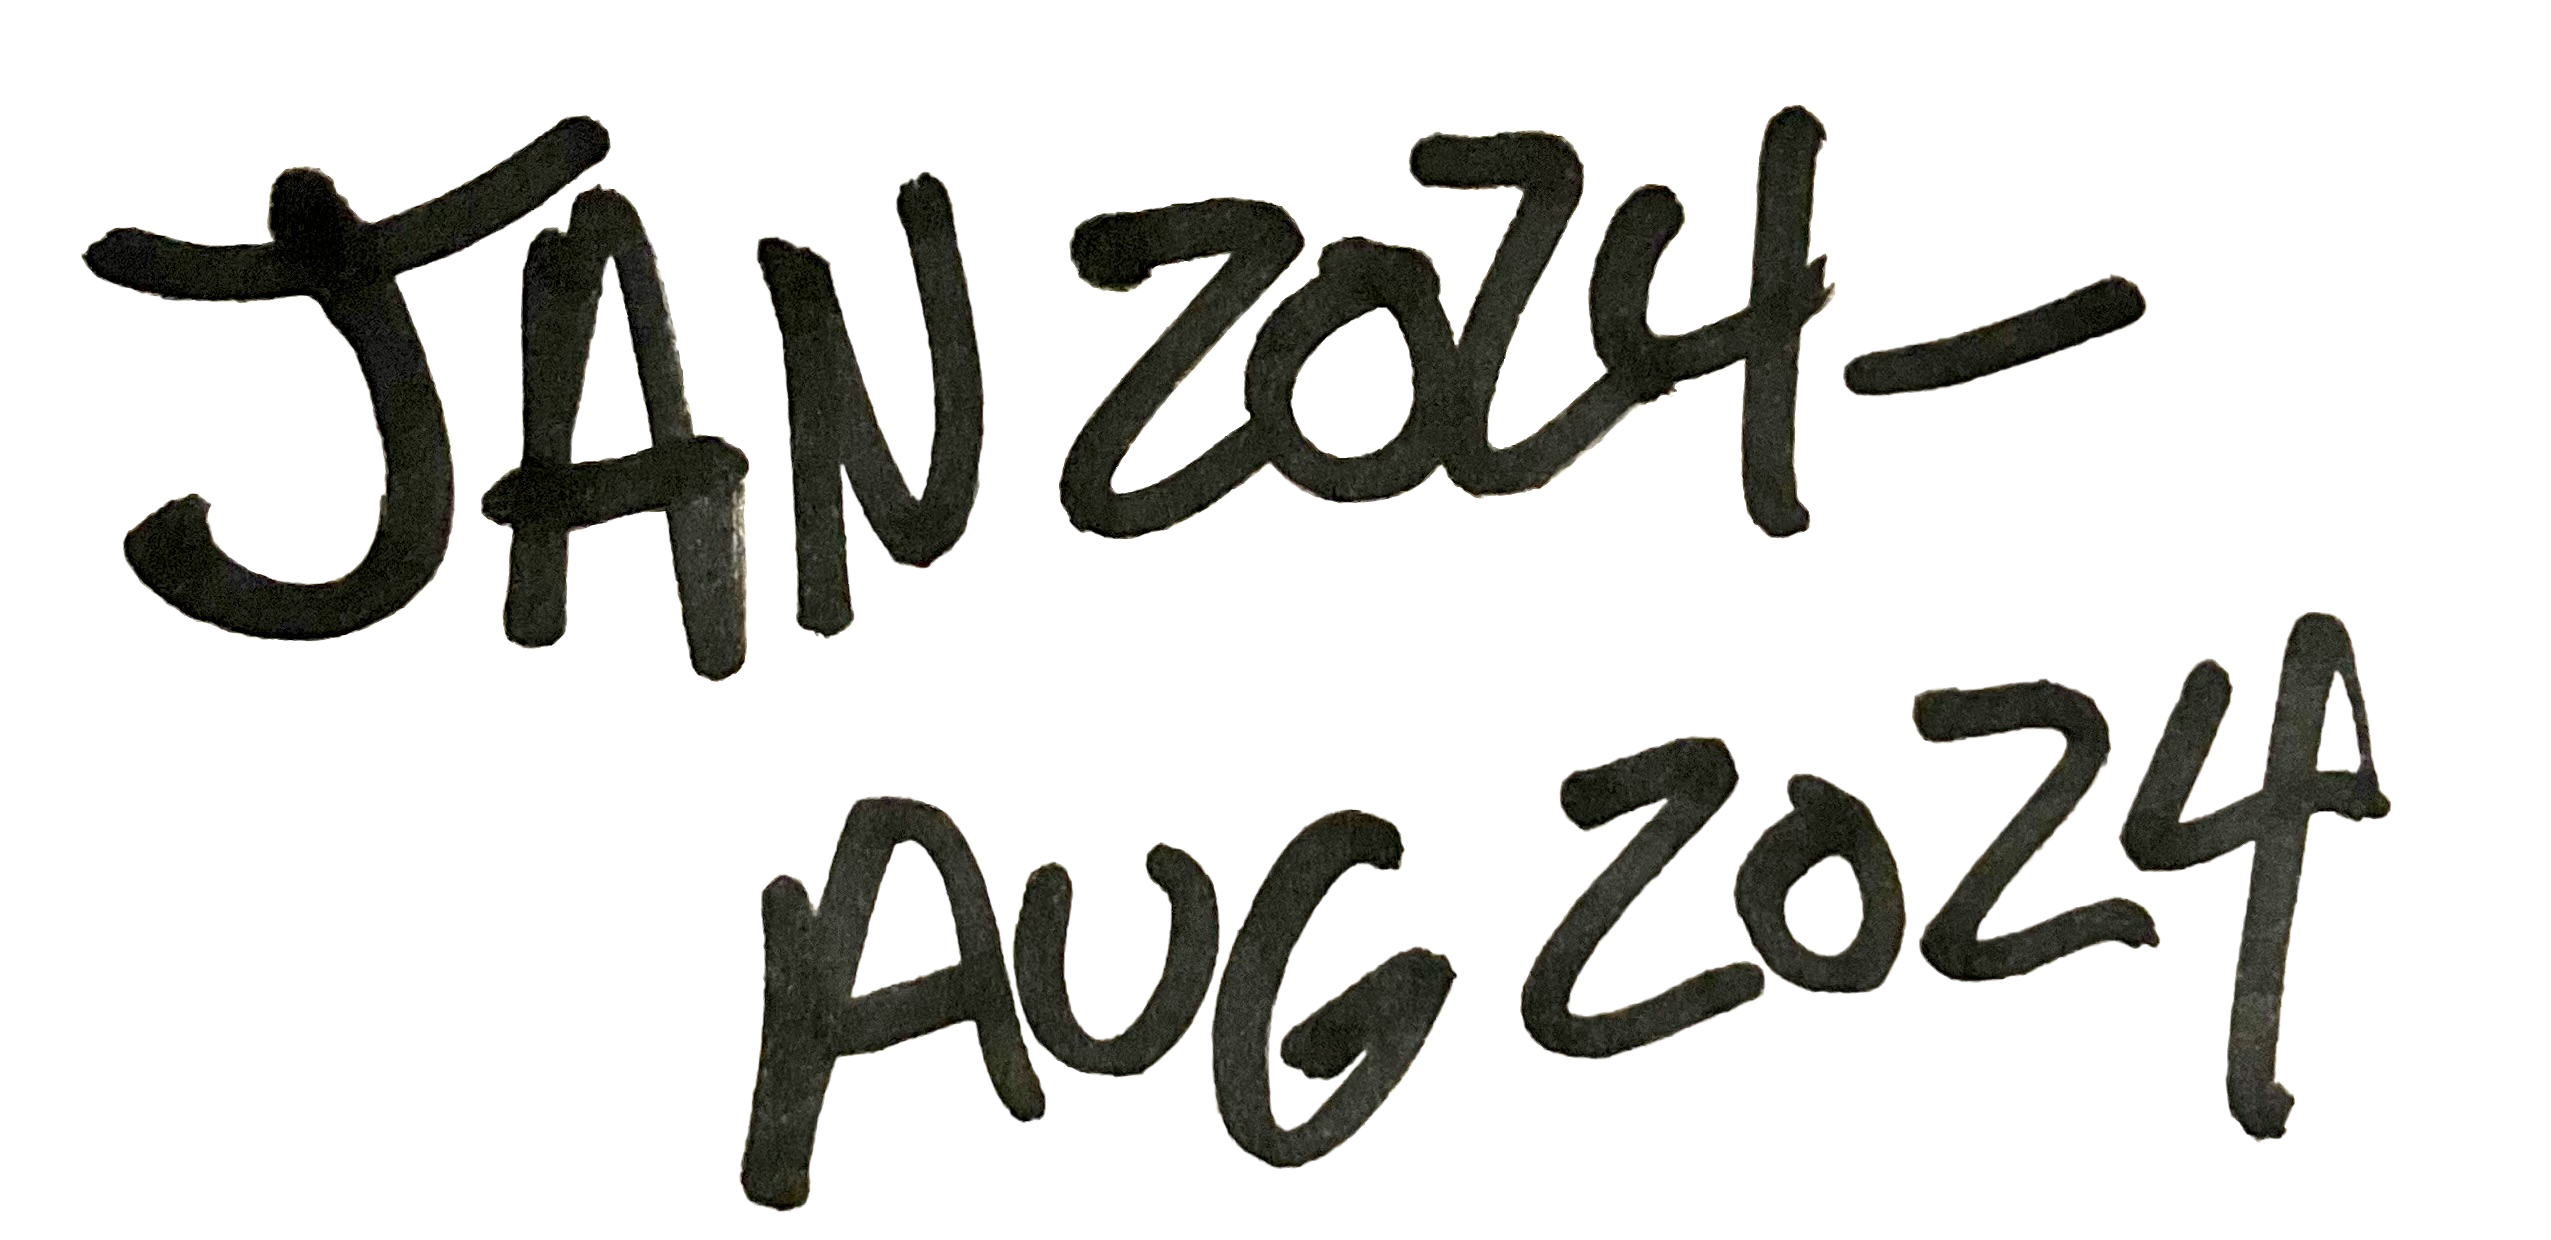 JAN 2024-
AUG 2024